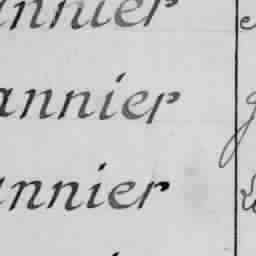 annier
annier
annier